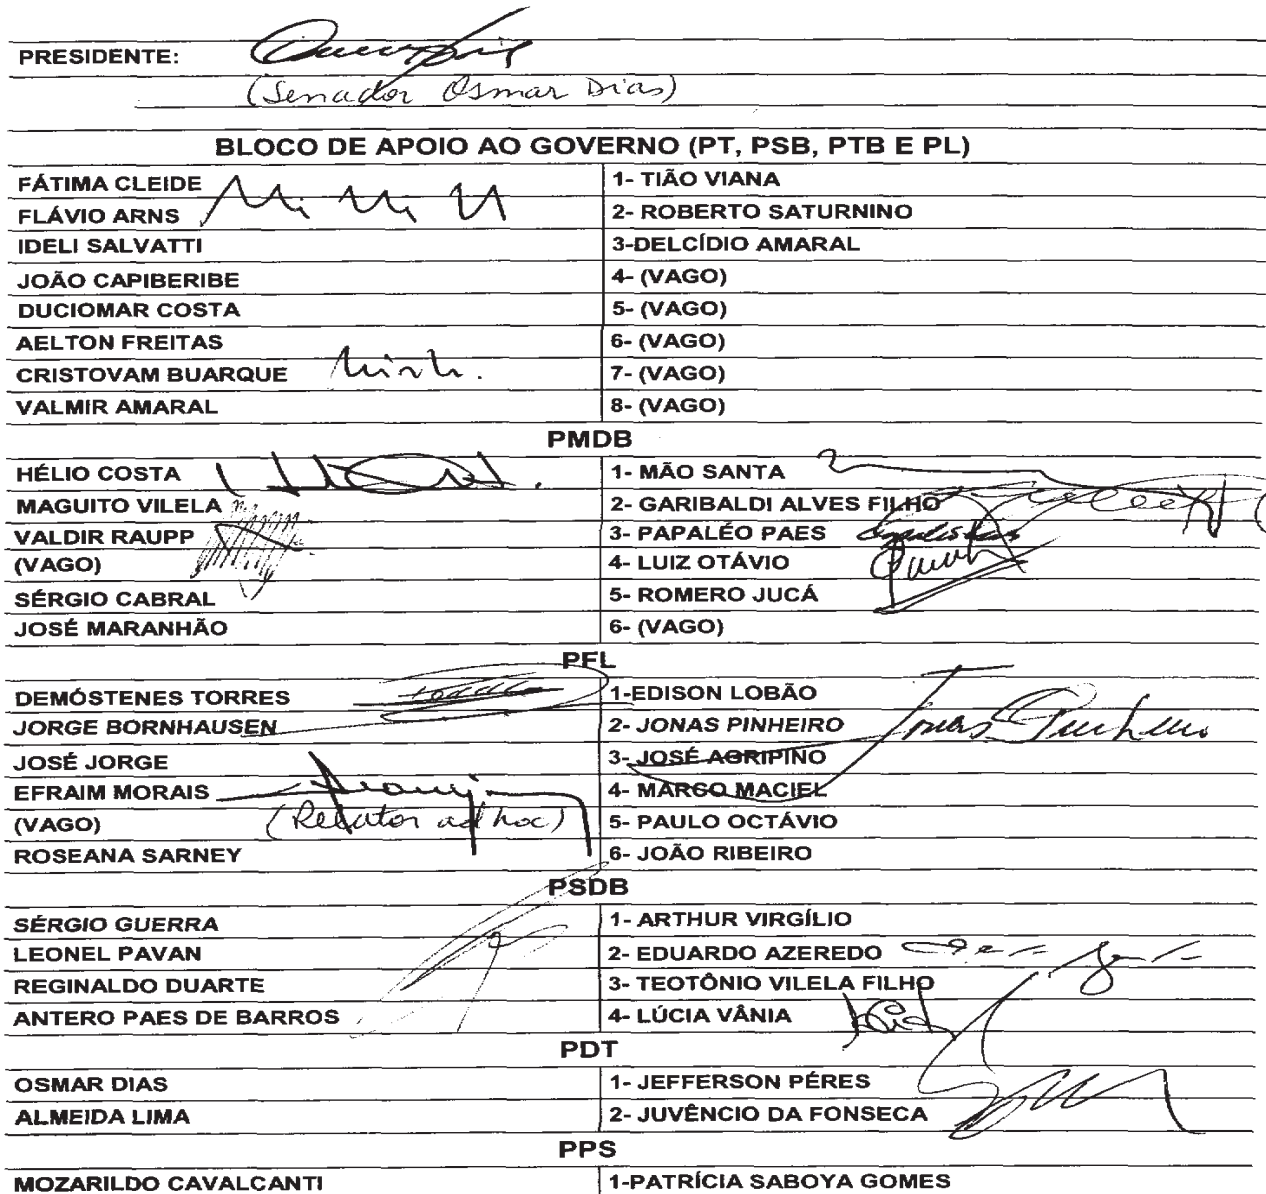 PRESIDENTE:
(Senador Osmar Dias)
BLOCO DE APOIO AO GOVERNO (PT, PSB, PTB E PL)
FÁTIMA CLEIDE 1- TIÃO VIANA
FLÁVIO ARNS 2- ROBERTO SATURNINO
IDELI SALVATTI 3-DELCÍDIO AMARAL
JOÃO CAPIBERIBE 4- (VAGO)
DUCIOMAR COSTA 5- (VAGO)
AELTON FREITAS 6- (VAGO)
CRISTOVAM BUARQUE 7- (VAGO)
VALMIR AMARAL 8- (VAGO)
PMDB
HÉLIO COSTA 1- MÃO SANTA
MAGUITO VILELA 2- GARIBALDI ALVES FILHO
VALDIR RAUPP 3- PAPALÉO PAES
(VAGO) 4- LUIZ OTÁVIO
SÉRGIO CABRAL 5- ROMERO JUCÁ
JOSÉ MARANHÃO 6- (VAGO)
PFL
DEMÓSTENES TORRES 1-EDISON LOBÃO
JORGE BORNHAUSEN 2- JONAS PINHEIRO Jonas Pinheiro
JOSÉ JORGE 3- JOSÉ AGRIPINO
EFRAIM MORAIS 4- MARCO MACIEL
(VAGO) (Relator ad hoc) 5- PAULO OCTÁVIO
ROSEANA SARNEY 6- JOÃO RIBEIRO
PSDB
SÉRGIO GUERRA 1- ARTHUR VIRGÍLIO
LEONEL PAVAN 2- EDUARDO AZEREDO
REGINALDO DUARTE 3- TEOTÔNIO VILELA FILHO
ANTERO PAES DE BARROS 4- LÚCIA VÂNIA
PDT
OSMAR DIAS 1- JEFFERSON PÉRES
ALMEIDA LIMA 2- JUVÊNCIO DA FONSECA
PPS
MOZARILDO CAVALCANTI 1-PATRÍCIA SABOYA GOMES